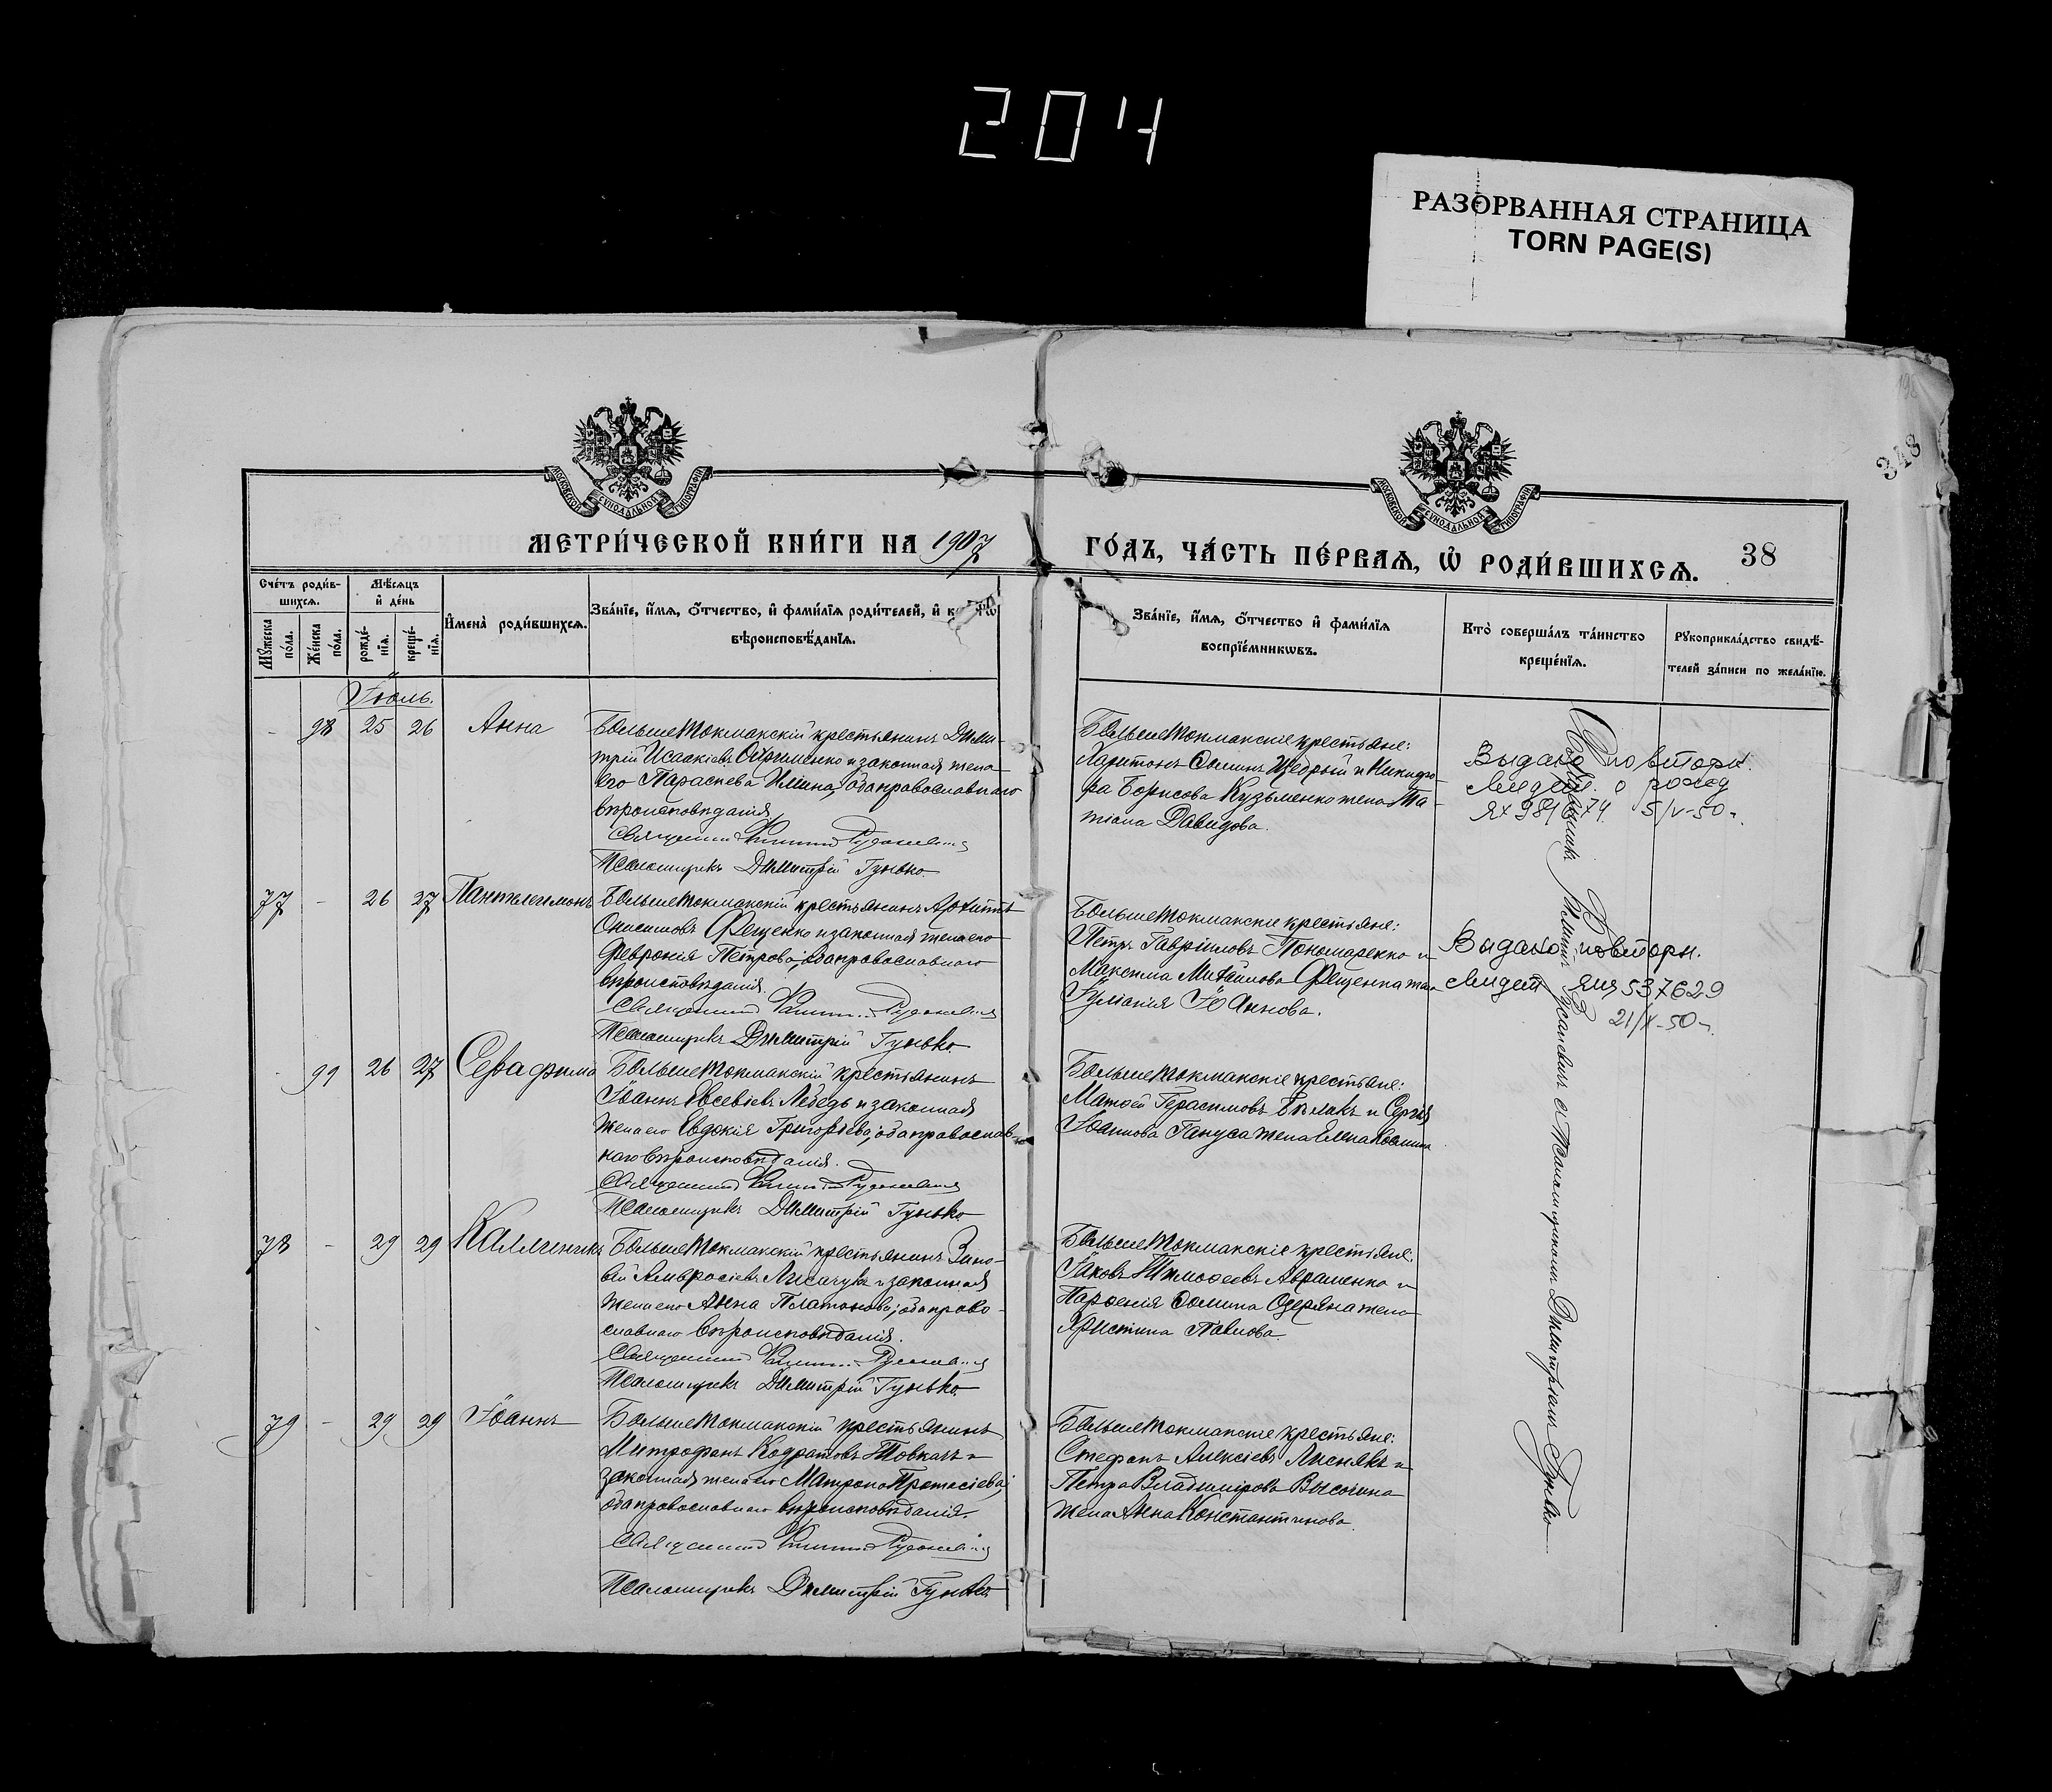 204
РАЗОРВАННАЯ СТРАНИЦА
TORN PAGE(S)
198
348
МОСКОВСКОЙ СѴНОДАЛЬНОЙ ТИПОГРАФІИ
МОСКОВСКОЙ СѴНОДАЛЬНОЙ ТИПОГРАФІИ
МЕТРИ́ЧЕСКОЙ КНИ́ГИ НА 1907
ГО́ДЪ, ЧА́СТЬ ПЕ́РВАѦ, Ѡ РОДИ́ВШИХСѦ.
38
Сче́тъ роди́в-
шихсѧ.
Мѣ́сѧцъ
и҆ де́нь
Мꙋ́жеска
по́ла.
Же́нска
по́ла.
рожде́-
нїѧ.
креще́-
нїѧ.
И҆мена̀ роди́вшихсѧ.
Зва́нїе, и҆́мѧ, ѻ҆́тчество, и҆ фами́лїѧ роди́телей, и҆
вѣроисповѣ́данїѧ.
Зва́нїе, и҆́мѧ, ѻ҆́тчество и҆ фами́лїѧ
воспрїе́мникѡвъ.
Кто̀ соверша́лъ та́инство
креще́нїѧ.
Рꙋкоприкла́дство свидѣ́-
телей за́писи по жела́нїю.
Іюль.
- 98 25 26 Анна
Больше Токмакскій крестьянинъ Дими-
трій Исаакіевъ и законная жена
его Параскева Ильина, оба православнаго
вѣроисповѣданія
Священникъ
Псаломщикъ Димитрій Гунько
Больше Токмакскіе крестьяне:
Харитонъ Ѳоминъ Щедрый и Никифо-
ра Борисова Кузьменко жена Та-
тіана Давидова.
Выдано повторн.
свидет. о рожд
5/V-50 г.
77 - 26 27 Пантелеимонъ
Больше Токмакскій крестьянинъ Архиппъ
Онисимовъ Фещенко и законная жена его
Февронія Петрова, оба православнаго
вѣроисповѣданія.
Священникъ
Псаломщикъ Димитрій Гунько
Больше Токмакскіе крестьяне:
Петръ Гавріиловъ Пономаренко и
Максима Михаилова Фещенка жена
Іуліанія Іоаннова.
Выдано повторн.
свидет 537629
21/X-50 г.
- 99 26 27 Серафима
Больше Токмакскій крестьянинъ
Іоаннъ Евсевіевъ Лебедь и законная
жена его Евдокія Григорьева, оба православ-
наго вѣроисповѣданія.
Священникъ
Псаломщикъ Димитрій Гунько
Больше Токмакскіе крестьяне:
Матѳей Герасимовъ и Сергія
Іоаннова Гануса жена Елена
78 - 29 29 Каллиникъ
Больше Токмакскій крестьянинъ Зино-
вій Амвросіевъ Лисачукъ и законная
жена его Анна Платонова, оба право-
славнаго вѣроисповѣданія.
Священникъ
Псаломщикъ Димитрій Гунько
Больше Токмакскіе крестьяне:
Іаковъ Тимоѳеевъ Авраменко и
Парѳенія Ѳомина жена
Христина Павлова.
79 - 29 29 Іоаннъ
Больше Токмакскій крестьянинъ
Митрофанъ Кодратовъ Товкачъ и
законная жена его Матрона Протасіева,
оба православнаго вѣроисповѣданія.
Священникъ
Псаломщикъ Димитрій Гунько
Больше Токмакскіе крестьяне:
Стефанъ Алексіевъ Лиснякъ и
Петра Владимірова Высочина
жена Анна Константинова.
Священникъ съ псаломщикомъ Димитріемъ Гунько